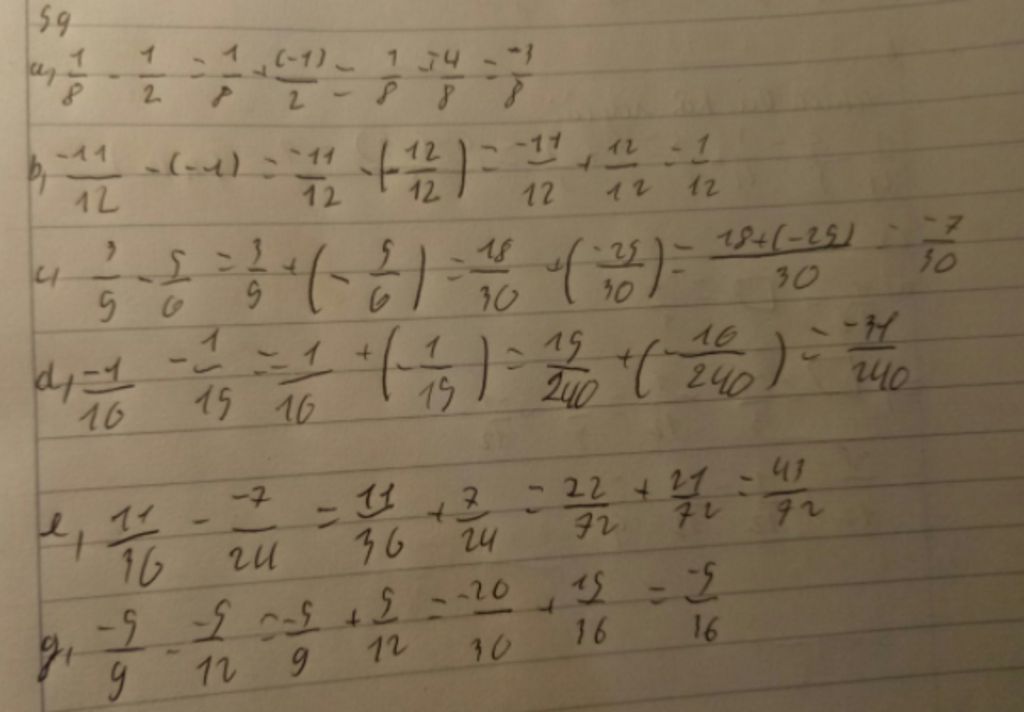 59
a, 1/8 - 1/2 = 1/8 + (-1)/2 = 1/8 + -4/8 = -3/8
b, -11/12 - (-1) = -11/12 - (-12/12) = -11/12 + 12/12 = 1/12
c, 3/5 - 5/6 = 3/5 + (-5/6) = 18/30 + (-25/30) = 18+(-25)/30 = -7/30
d, -1/16 - 1/15 = -1/16 + (-1/15) = 15/240 + (-16/240) = -31/240
e, 11/36 - -7/24 = 11/36 + 7/24 = 22/72 + 21/72 = 43/72
g, -5/9 - -5/12 = -5/9 + 5/12 = -20/30 + 15/36 = -5/36